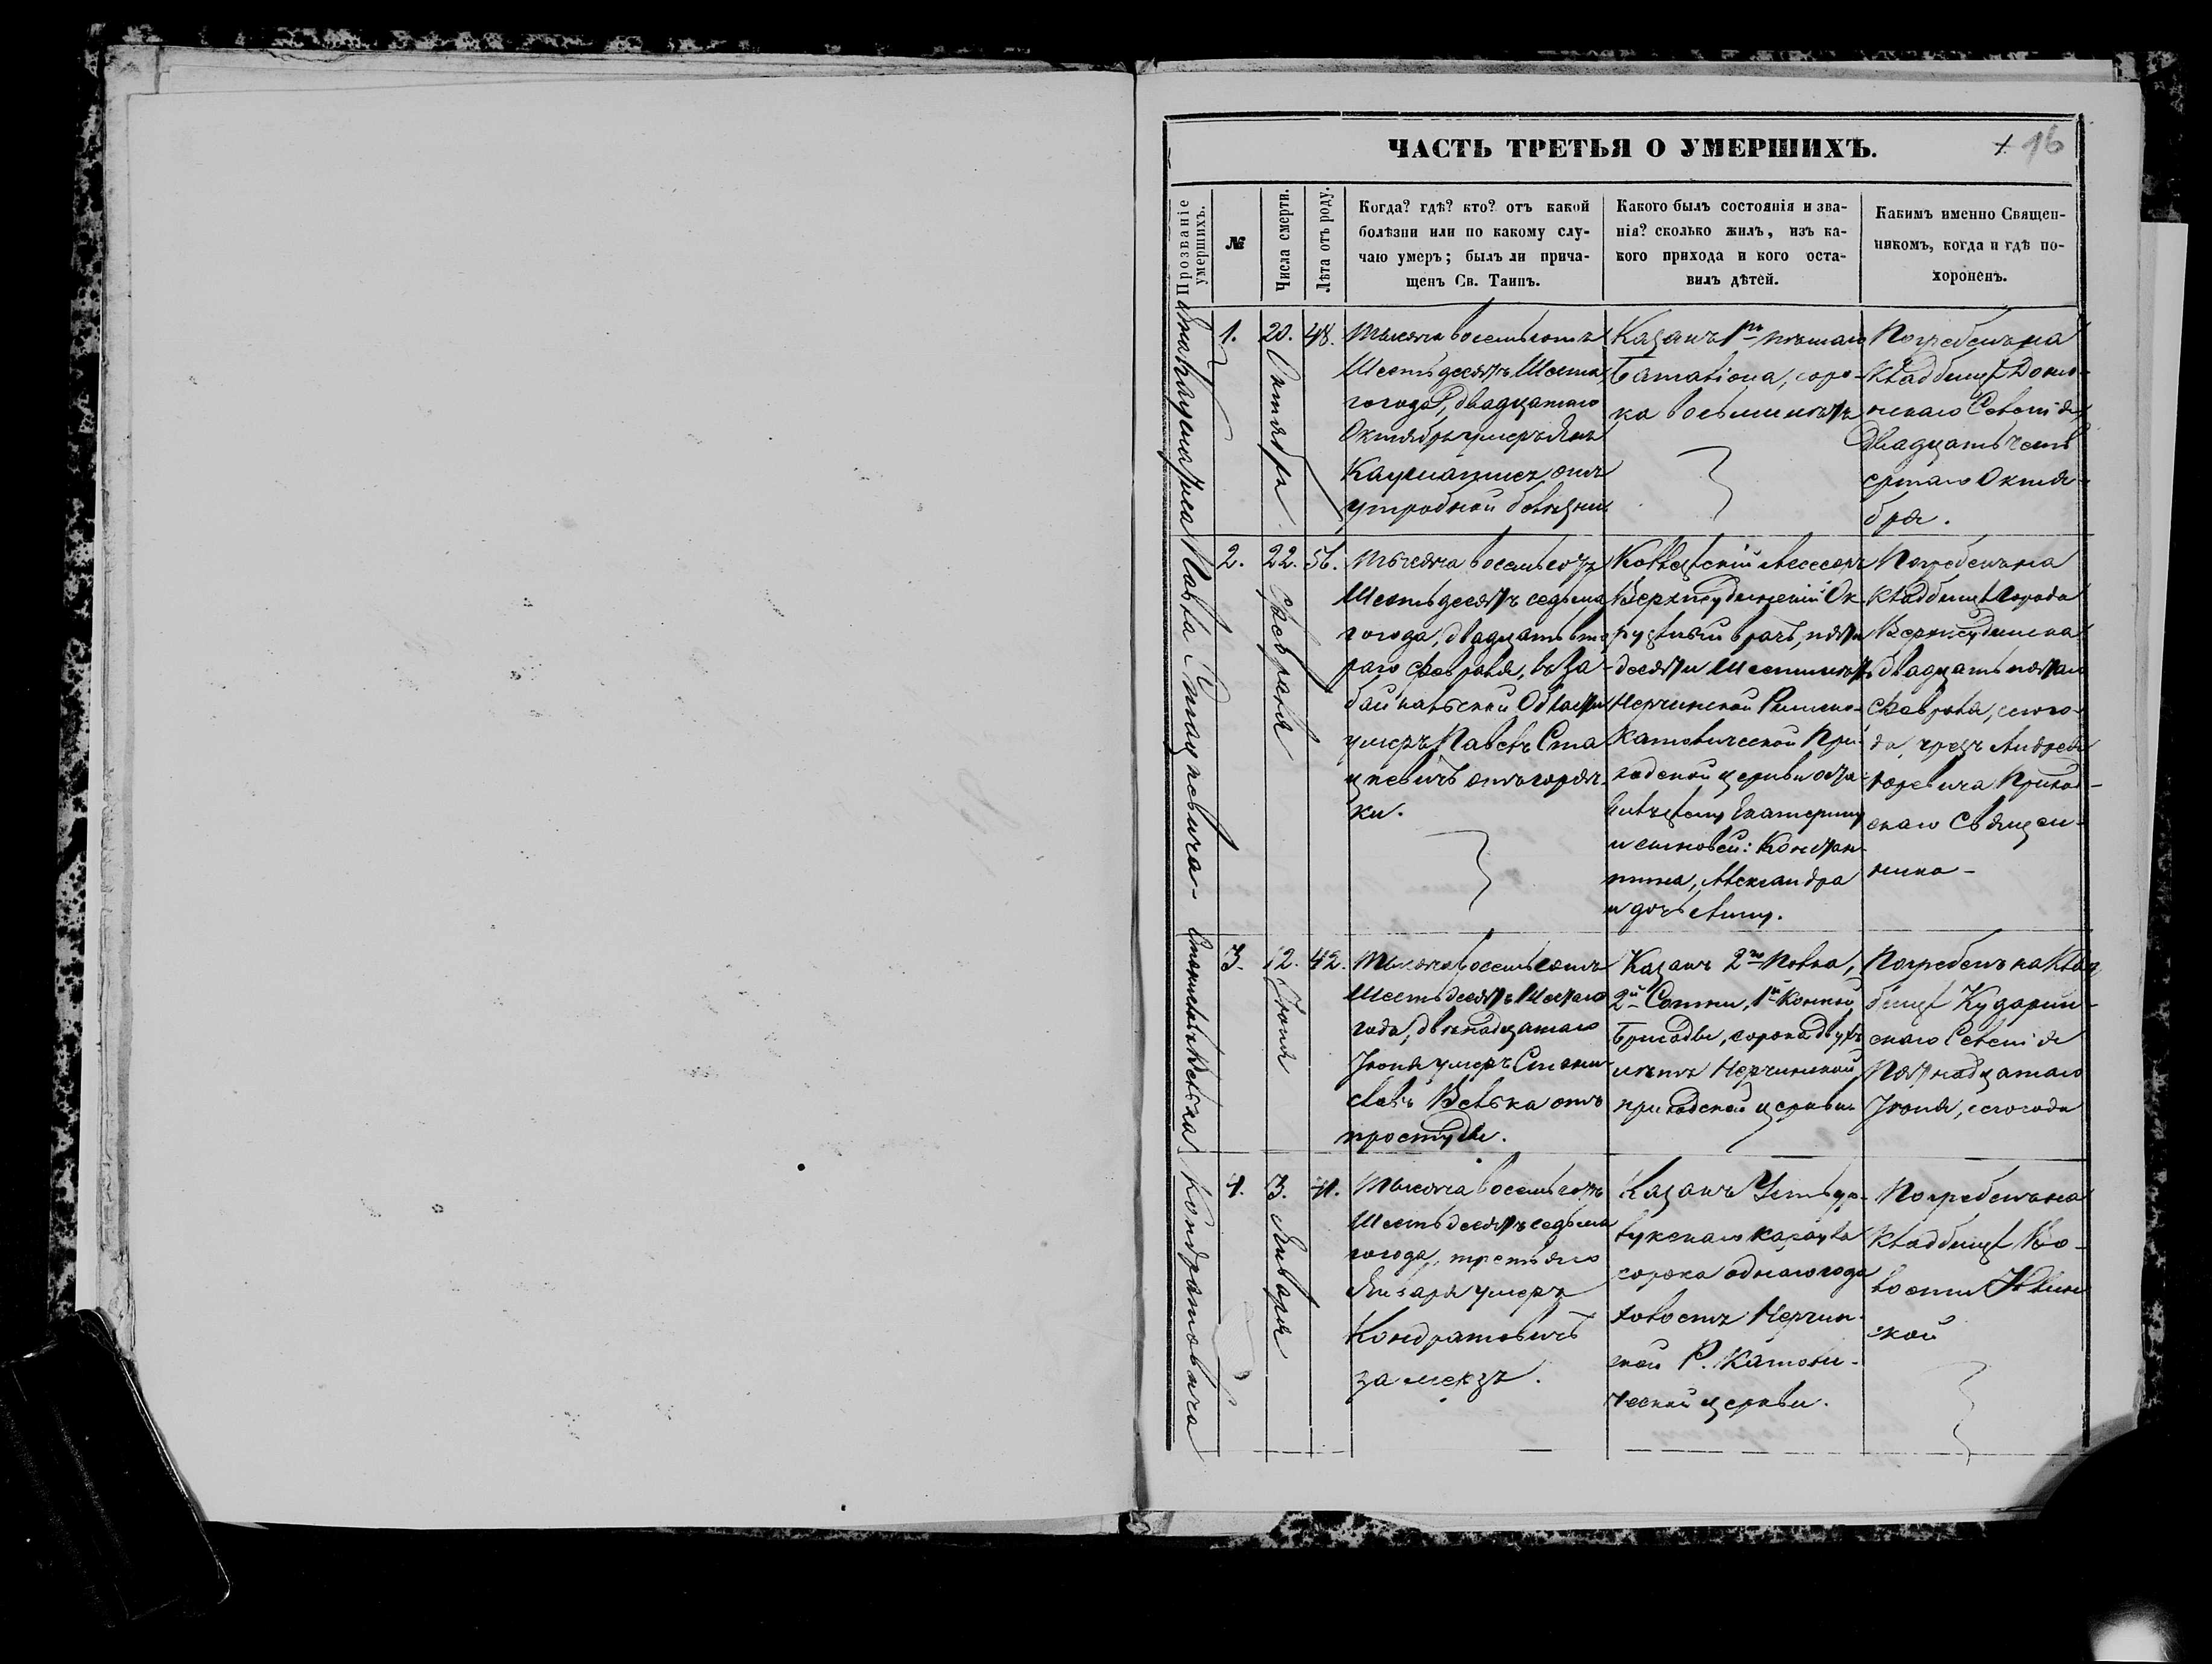 ЧАСТЬ ТРЕТЬЯ О УМЕРШИХЪ.
16
Прозваніе умершихъ.
№
Числа смерти.
Лѣта отъ роду.
Когда? гдѣ? кто? отъ какой
болѣзни или по какому слу-
чаю умеръ; былъ ли прича-
щенъ Св. Таинъ.
Какого былъ состоянія и зва-
нія? сколько жилъ, изъ ка-
кого прихода и кого оста-
вилъ дѣтей.
Какимъ именно Священ-
никомъ, когда и гдѣ по-
хороненъ.
1.
20. Октября
48.
Тысяча восемьсотъ
Шестьдесятъ Шеста
гогода, двадцатаго
Октября умеръ Янъ
отъ
утробной болѣзни
Казакъ 1го пѣшаго
Баталіона, соро-
ка восьми лѣтъ
Погребенъ на
кладбищѣ Доно-
нскаго Селенія
двадцать четв
ертаго Октя-
бря.
Павла Стацкевича
2.
22. Февраля
56.
Тысяча восемьсотъ
Шестьдесятъ седьма
гогода, двадцать вто
раго Февраля, въ За-
байкальской Области
умеръ Павелъ Ста
цкевичъ отъ горяч-
ки.
Коллежскій Ассесоръ
Верхнеудинскій Ок-
ружный врачъ, пяти
десяти Шести лѣтъ
Нерчинской Римско-
Католической При-
ходской церкви оста-
вилъ жену Екатерину
и сыновей: Констан-
тина, Александра
и дочь Анну.
Погребенъ на
кладбищѣ города
Верхнеудинска
двадцать пятаго
Февраля, сего го-
да, чрезъ Андрея
Юревича Приход-
скаго Священ-
ника -
3.
12. Іюня
42.
Тысяча восемьсотъ
Шестьдесятъ Шестаго
года, двѣнадцатаго
Іюня умеръ Стани-
славъ отъ
простуды.
Казакъ 2го Полка,
2й Сотни, 1й Конной
Бригады, сорока двухъ
лѣтъ Нерчинской
приходской церкви
Погребенъ на клад
бищѣ Кударин-
скаго Селенія
Пятнадцатаго
Іюня, сего года
Кондратовича
4.
3. Января
41.
Тысяча восемьсотъ
Шестьдесятъ седьма
гогода, третьяго
Января умеръ
Кондратовичъ
замерзъ.
Казакъ Усть-ур-
лукскаго караула
сорока одного года
холостъ Нерчин-
ской Р. Католи-
ческой церкви.
Погребенъ на
кладбищѣ
ской